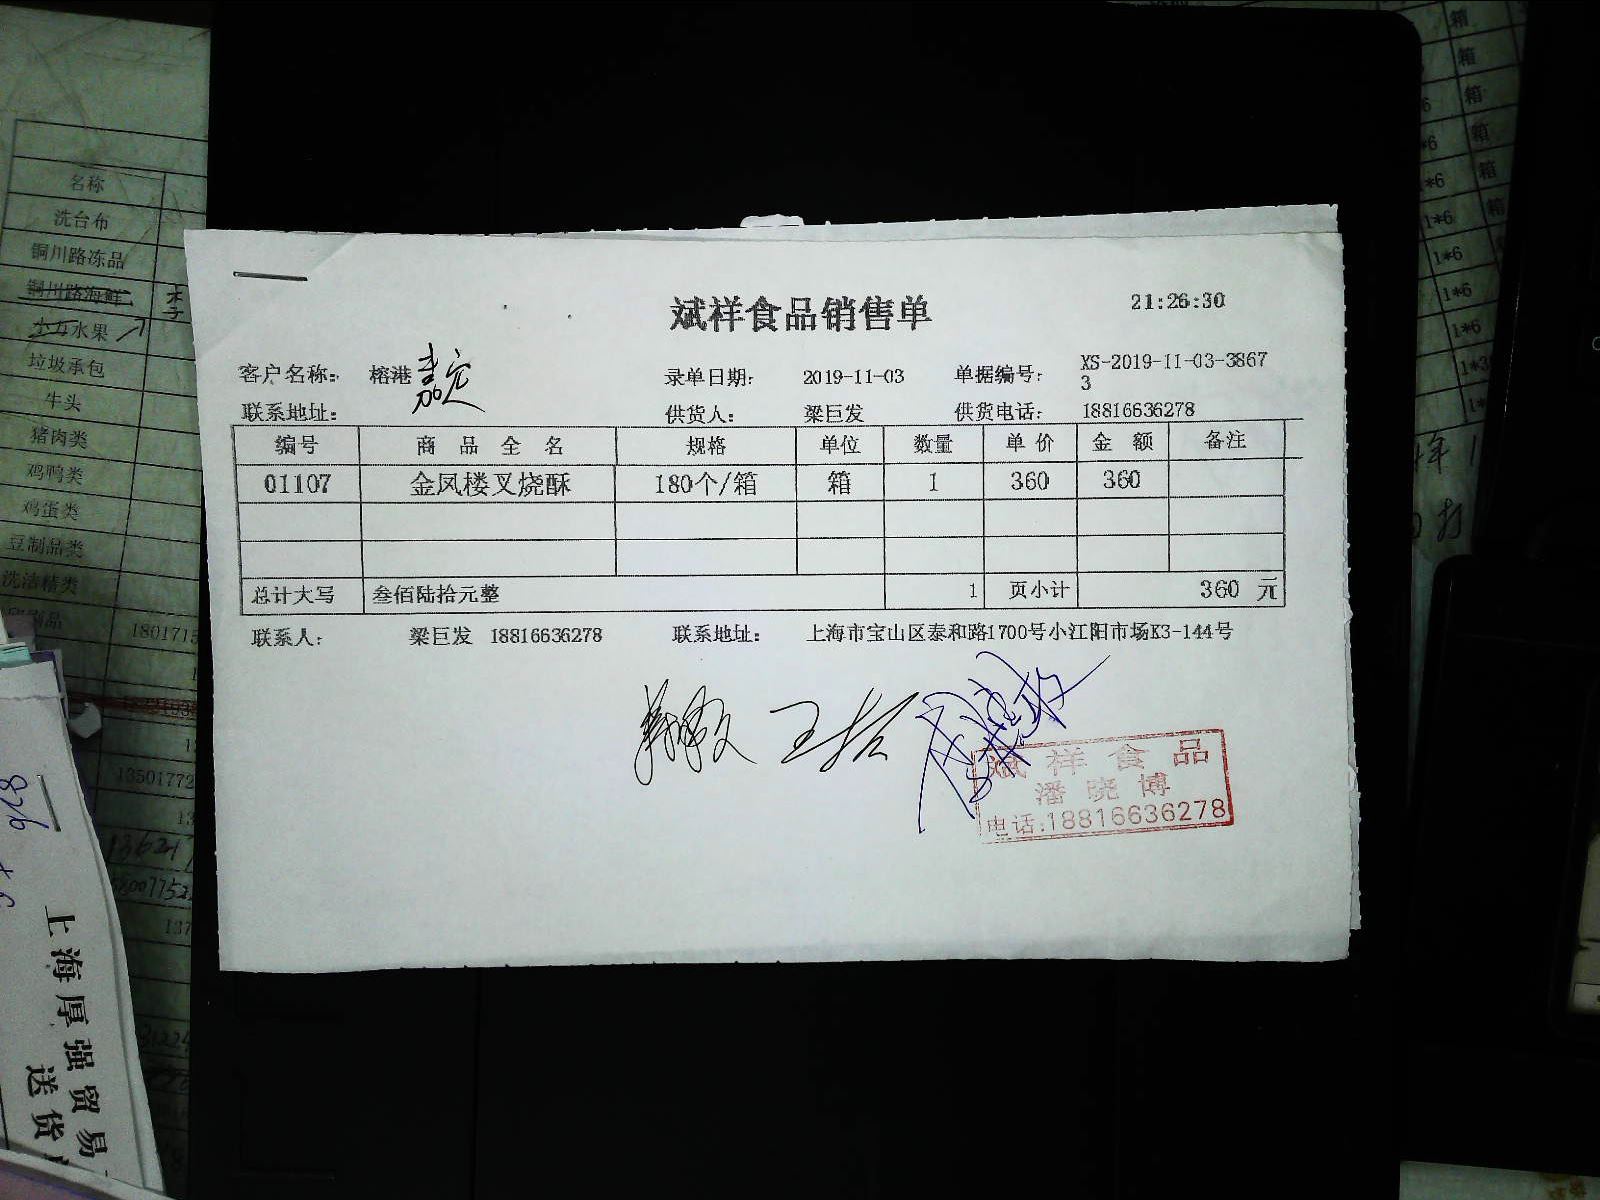 斌祥食品销售单
21:26:30
客户名称: 榕港 嘉定 录单日期: 2019-11-03 单据编号: XS-2019-11-03-3867
3
联系地址: 供货人: 梁巨发 供货电话: 18816636278
编号 商品全名 规格 单位 数量 单价 金额 备注
01107 金凤楼叉烧酥 180个/箱 箱 1 360 360
总计大写 叁佰陆拾元整 1 页小计 360 元
联系人: 梁巨发 18816636278 联系地址: 上海市宝山区泰和路1700号小江阳市场K3-144号
斌祥食品
潘晓博
电话:18816636278
名称
洗台布
铜川路冻品
铜川路海鲜
水果
垃圾承包
牛头
猪肉类
鸡鸭类
鸡蛋类
豆制品类
洗洁精类
上海厚强贸易
送货